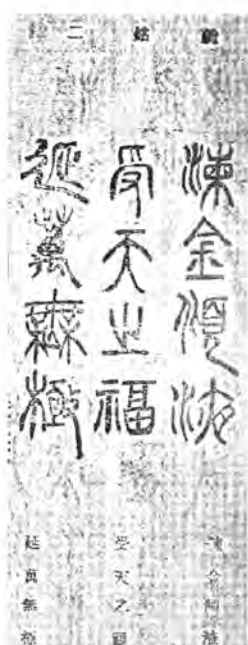 鏡銘二
湅金
受天之福
延萬無極
湅金
受天之福
延萬無極